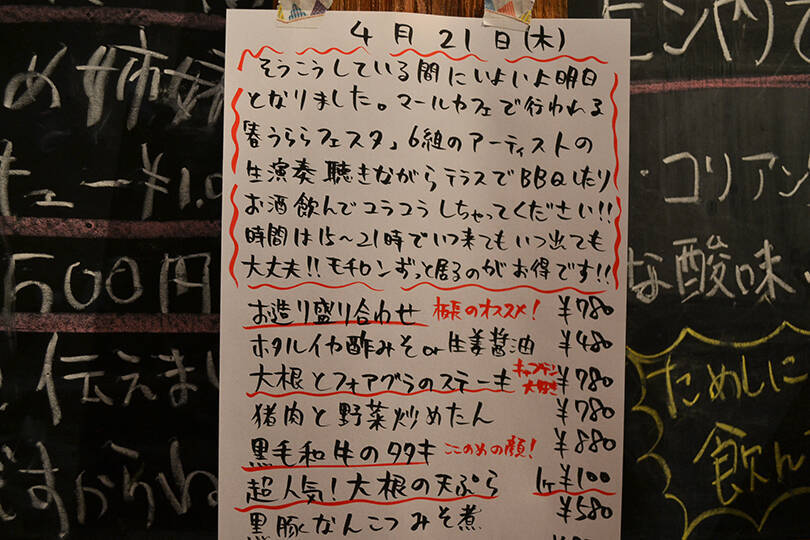 4月21日(木)
そうこうしている間にいよいよ明日
となりました。マールカフェで行われる
「春うららフェスタ」6組のアーティストの
生演奏聴きながらテラスでBBQしたり
お酒飲んでコラコラしちゃってください!!
時間は15〜21時でいつ来てもいつ出ても
大丈夫!!モチロンずっと居るのがお得です!!
お造り盛り合わせ 板長のオススメ! ¥780
ホタルイカ酢みそor生姜醤油 ¥480
大根とフォアグラのステーキ キャプテン大好き ¥780
猪肉と野菜炒めたん ¥780
黒毛和牛のタタキ ここのめの顔! ¥880
超人気!大根の天ぷら 1ケ¥100
黒豚なんこつみそ煮 ¥580
の
キュー¥1.0
500円
伝えま
ですからね
コリアン
な酸味
ためしに
飲ん